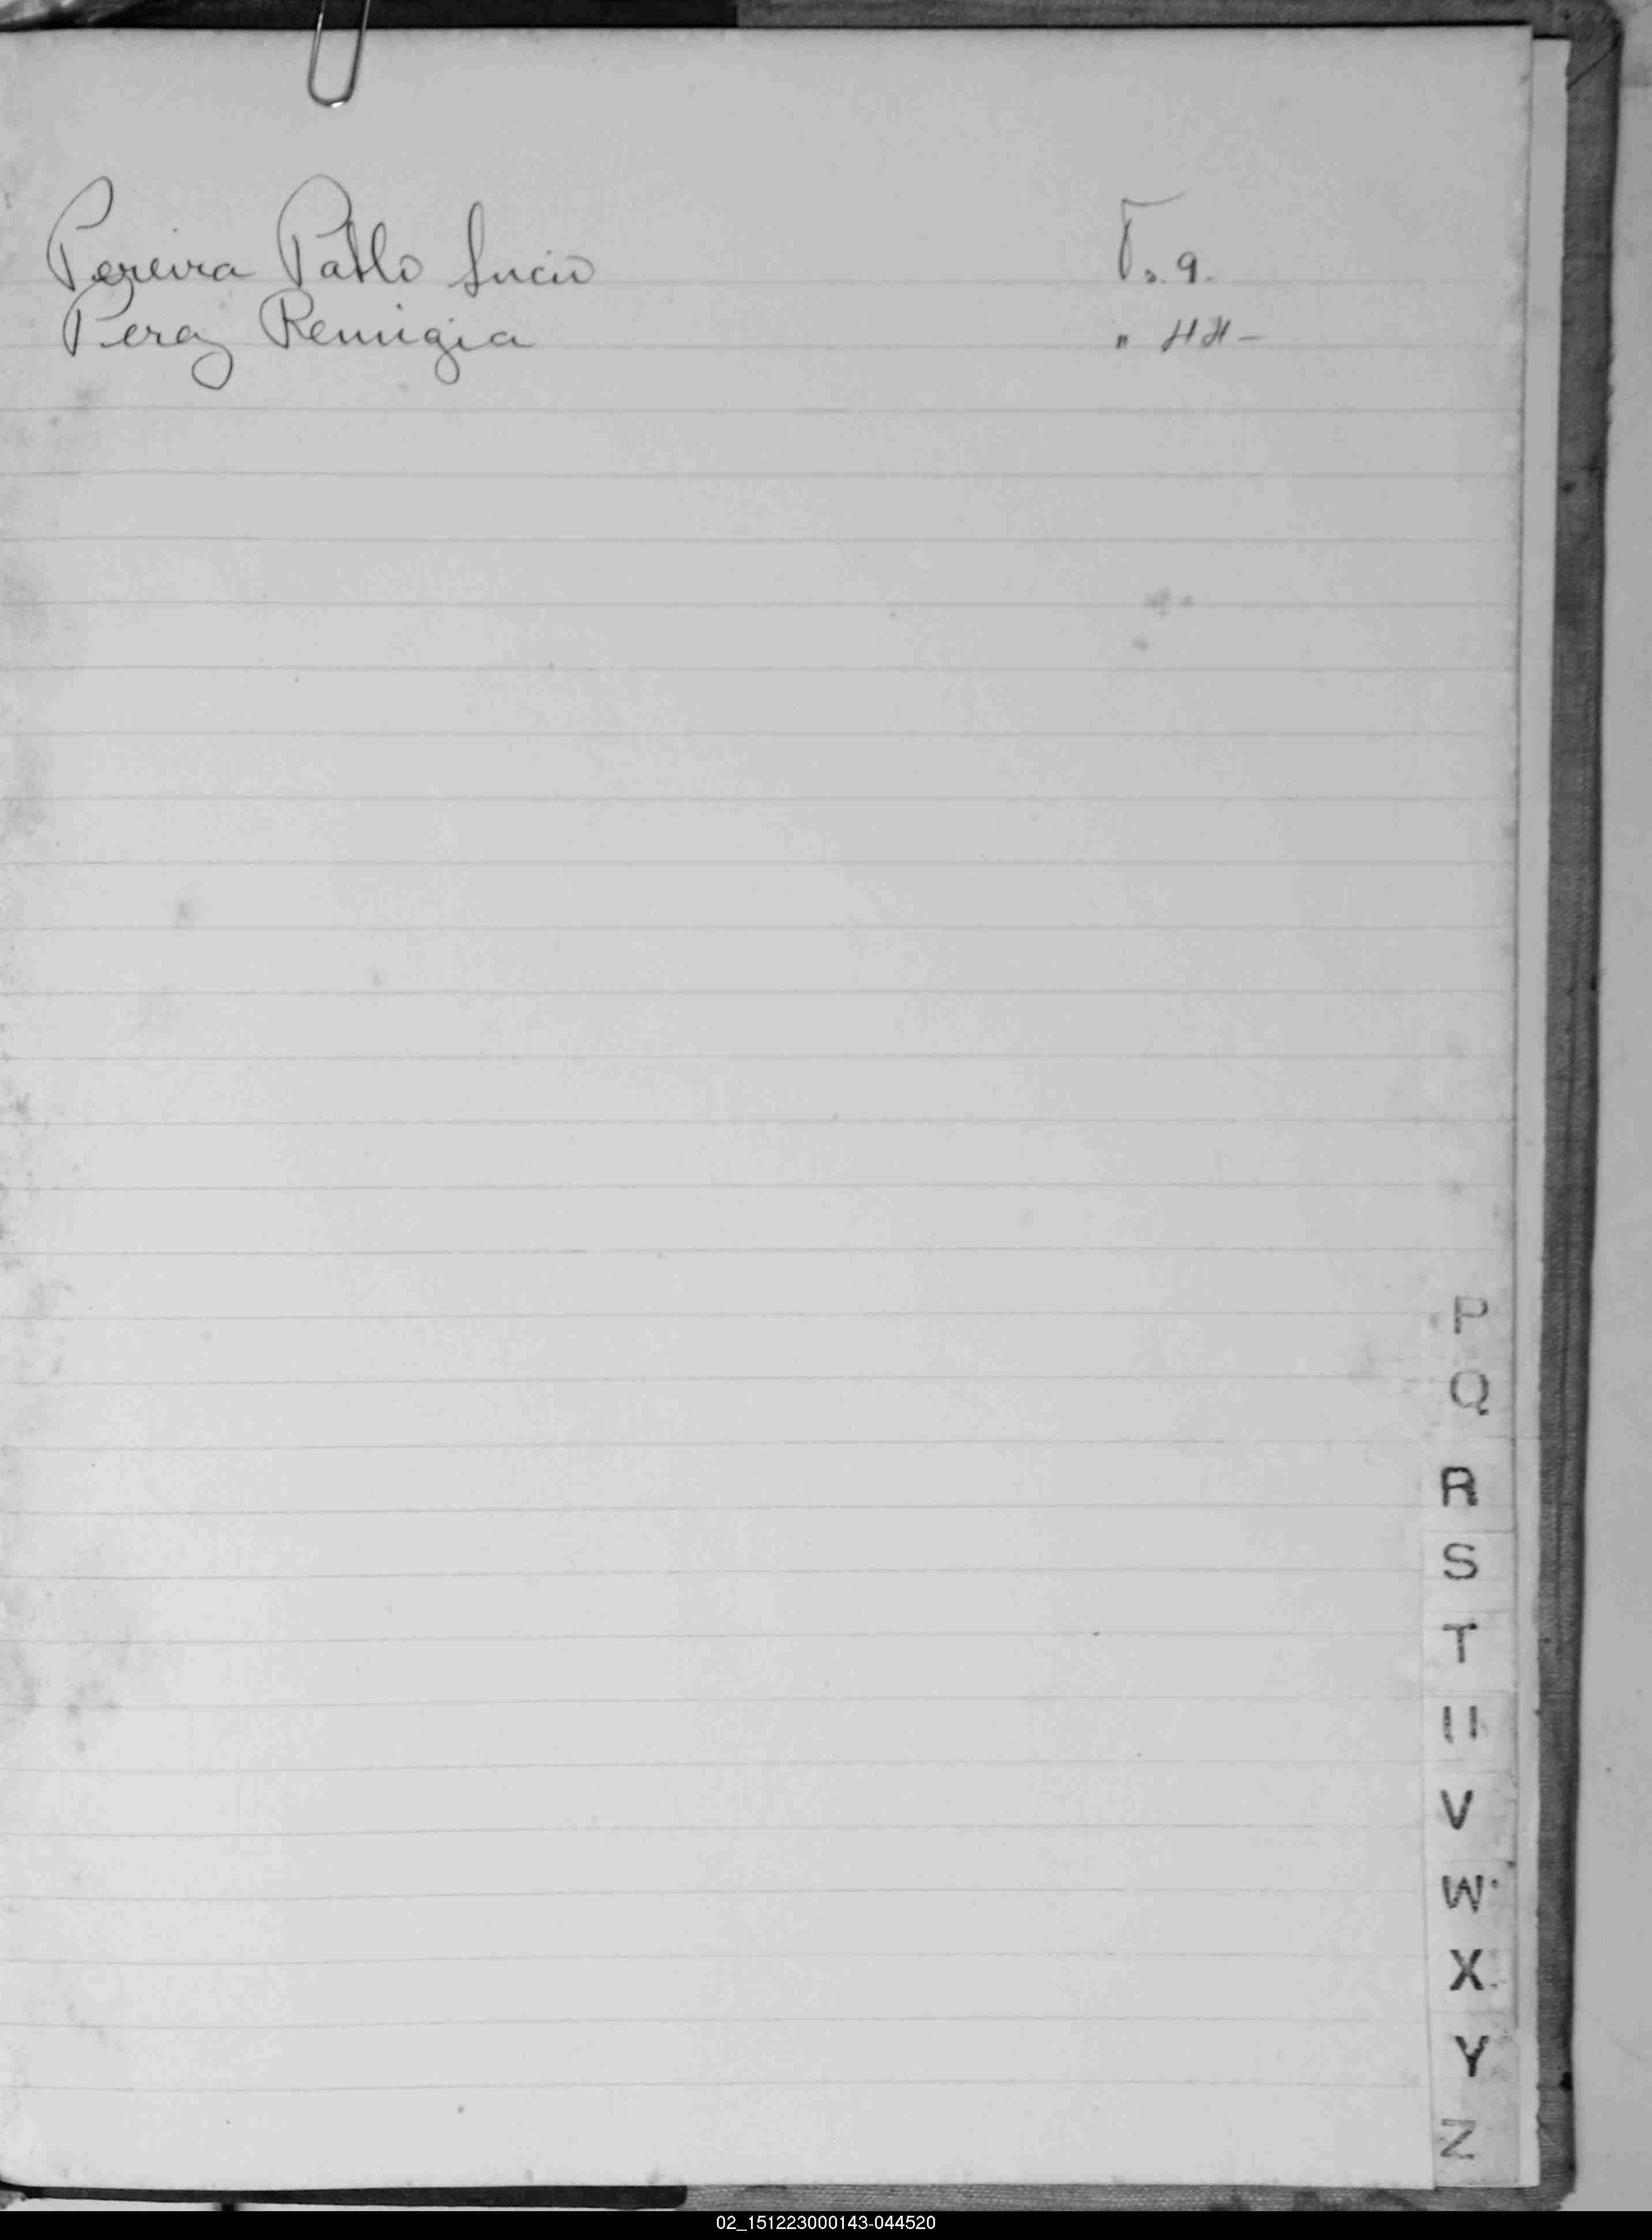 Pereira Pablo Lucio Fs. 9.
Perez Remigia " 44 -
P
Q
R
S
T
U
V
W
X
Y
Z
02_151223000143-044520